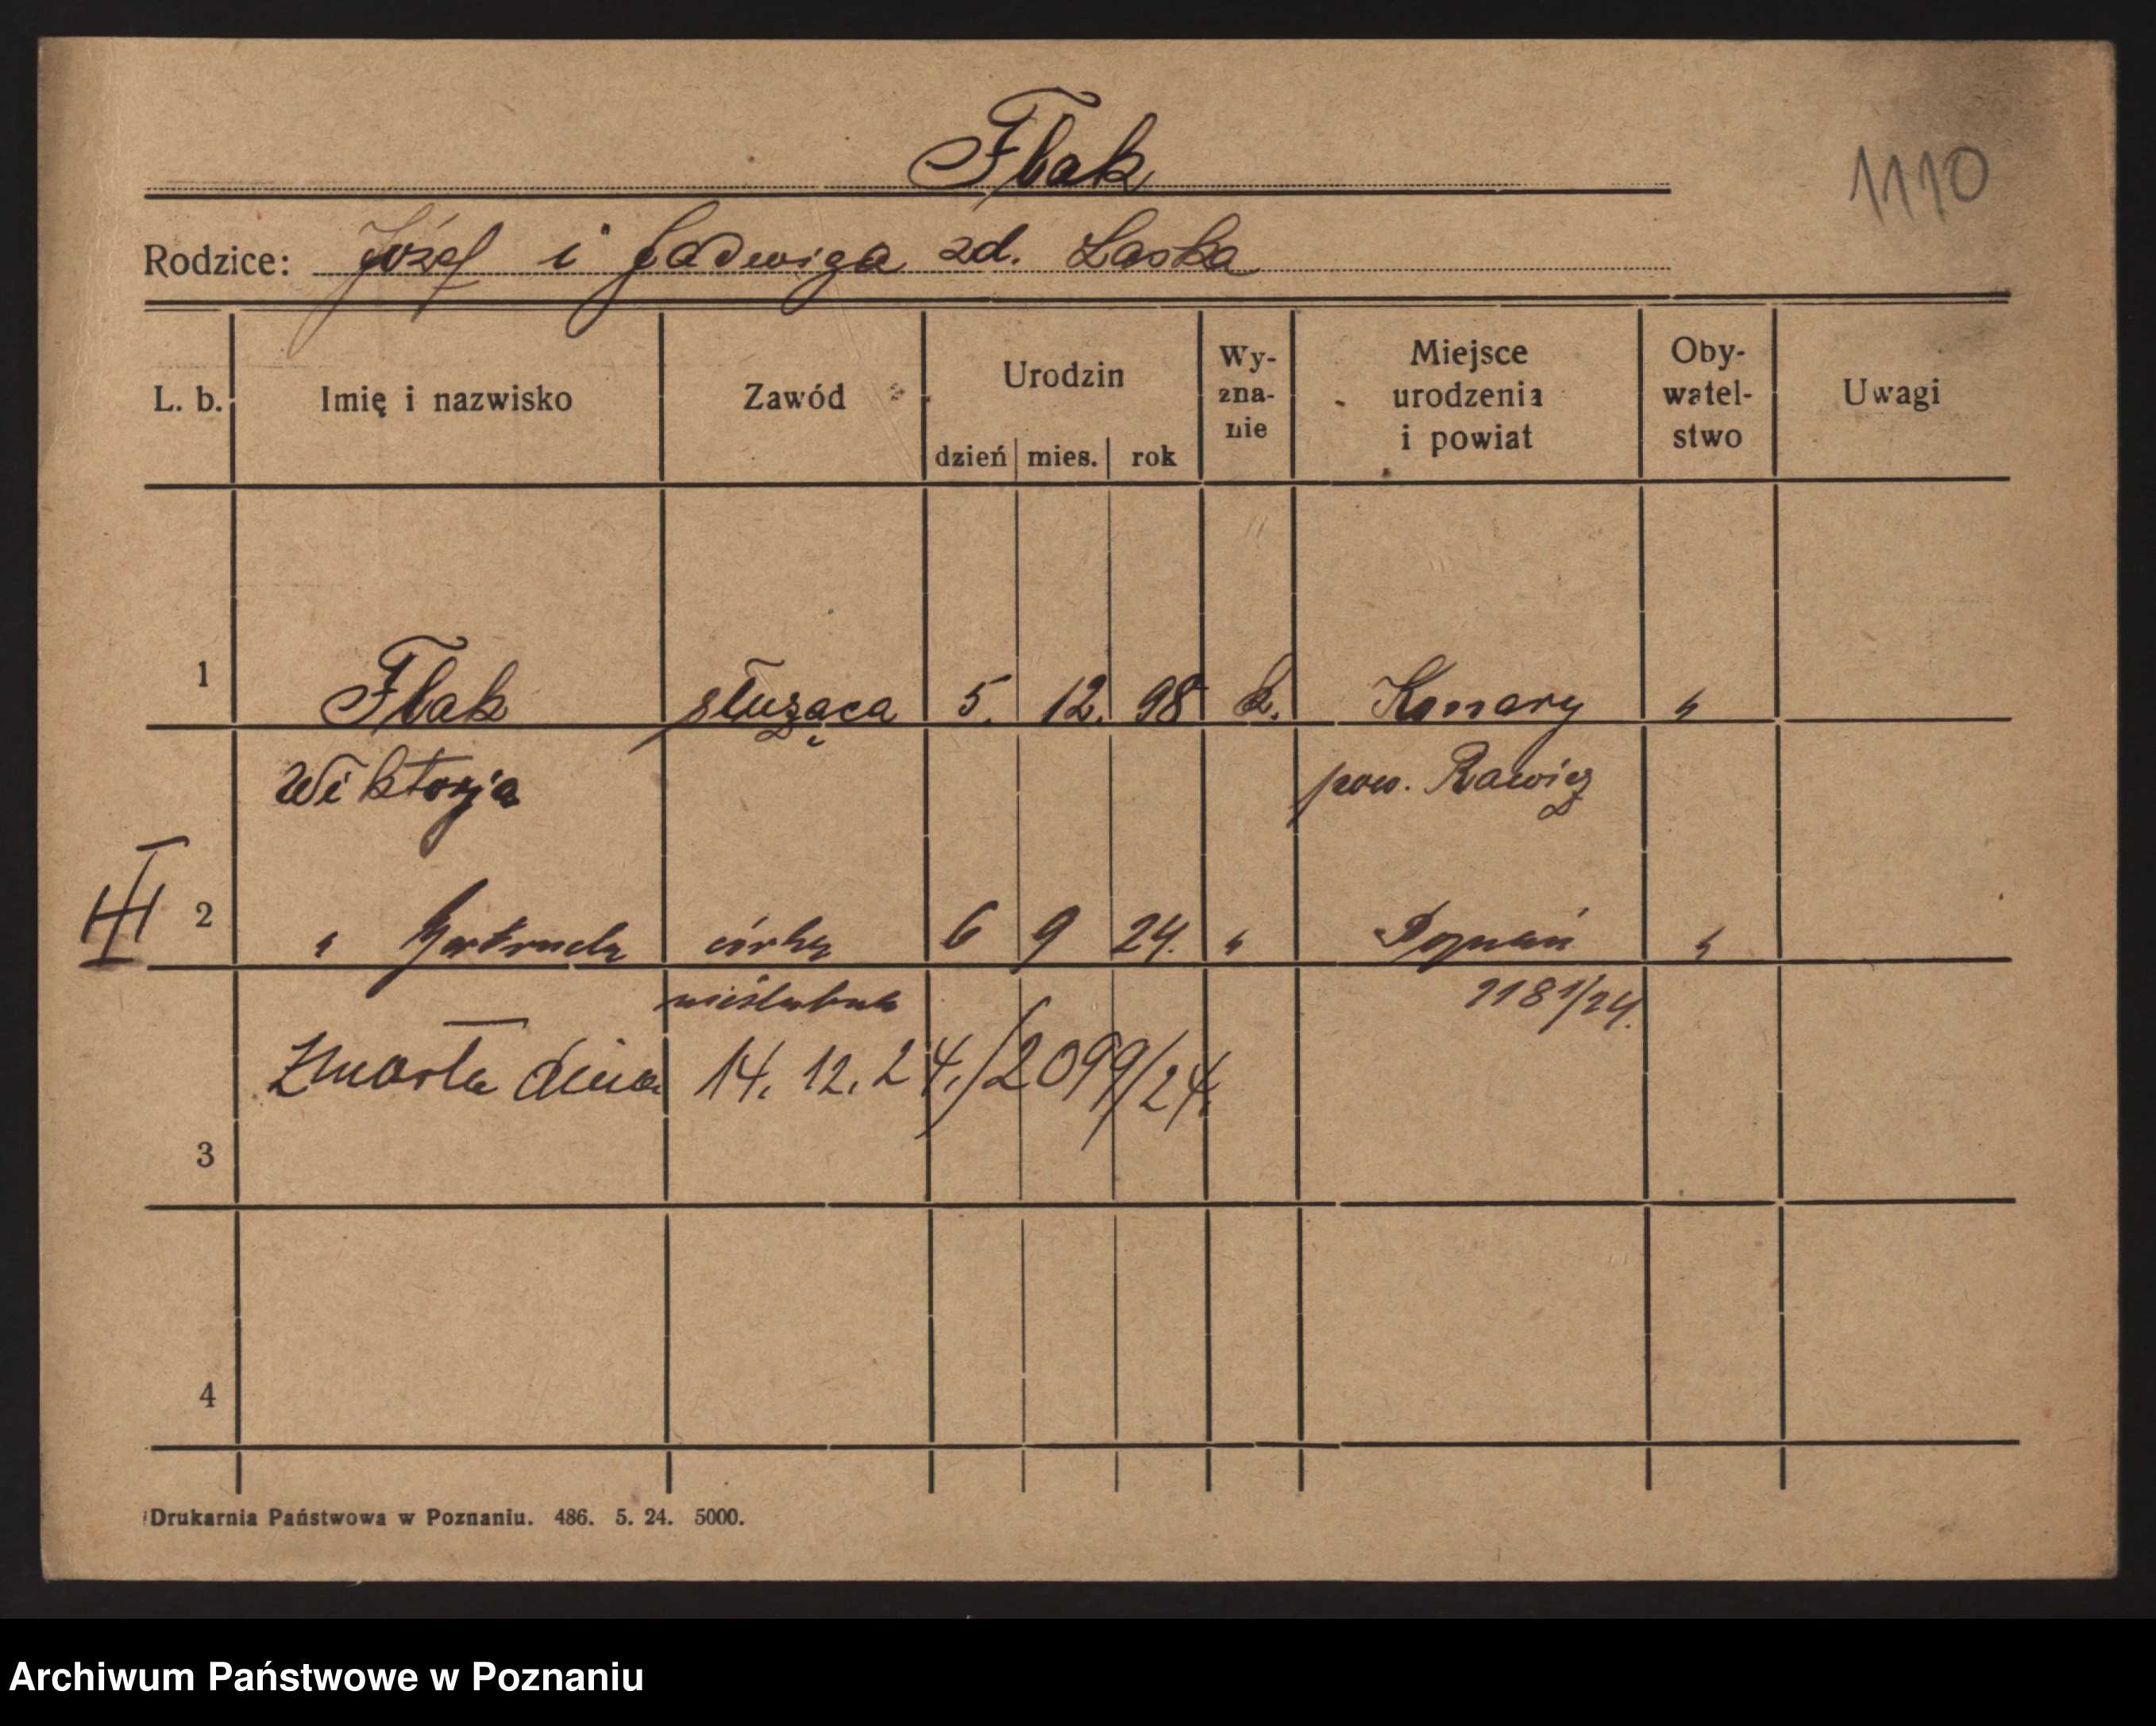 Flak
1110
Rodzice: Józef i Jadwiga zd. Laska
L. b. Imię i nazwisko Zawód Urodzin dzień mies. rok Wy-zna-nie Miejsce urodzenia i powiat Oby-watel-stwo Uwagi
1 Flak służąca 5. 12. 98 k. Konary "
Wiktorja pow. Rawicz
2 " Gertruda córka 6 9 24. " Poznań "
nieślubna 2181/24.
Zmarła dnia 14. 12. 24./2099/24.
3
4
Drukarnia Państwowa w Poznaniu. 486. 5. 24. 5000.
Archiwum Państwowe w Poznaniu